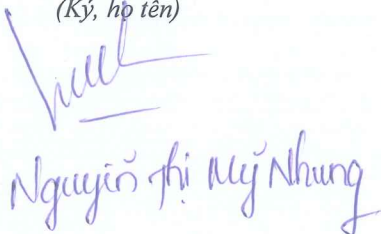 (Ký, họ tên)
Nguyễn Thị Mỹ Nhung